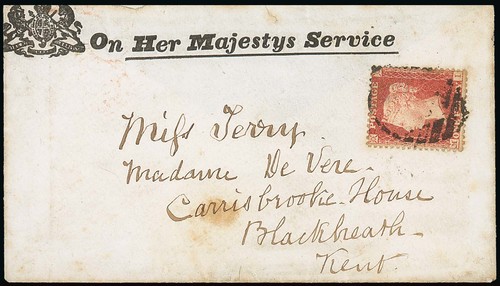 On Her Majestys Service
Miss Terry.
Madame De Vere.
Carrisbrooke House
Blackheath.
Kent.